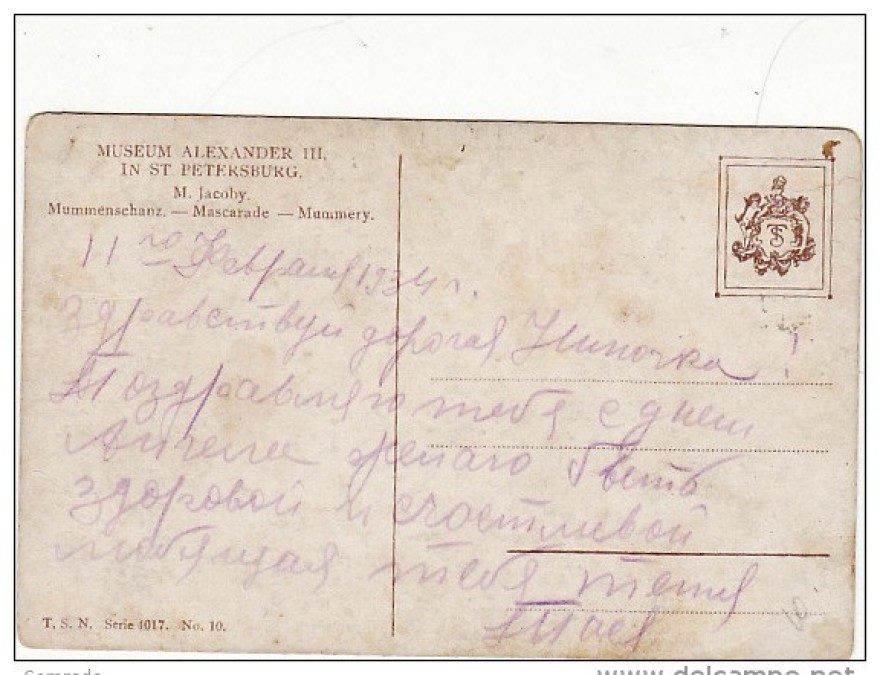 MUSEUM ALEXANDER III.
IN ST PETERSBURG.
M. Jacoby.
Mummenschanz. — Mascarade — Mummery.
11го Февраля 1934 г.
Здравствуй дорогая Ниночка!
Поздравляю тебя с днем
Ангела желаю быть
здоровой и счастливой
любящая тебя тетя
T. S. N. Serie 4017. No. 10.
TS
www.delcampe.net